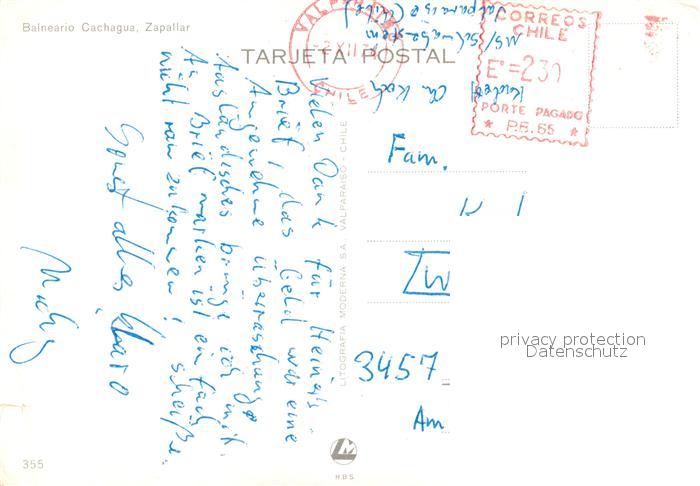 Balneario Cachagua, Zapallar
TARJETA POSTAL
VALPARAISO
2 XII
CHILE
CORREOS
CHILE
Eº=230
PORTE PAGADO
P.E. 65
MS/
Valparaiso (Chile)
Vielen Dank für Heinis
Brief! Das Geld war eine
Angenehme Überraschung.
Ausländisches bringe ich mit.
An Briefmarken ist einfach
nicht ran zu kommen! scheiße
Sonst alles klaro
Michy
LITOGRAFIA MODERNA S.A. VALPARAISO - CHILE
Fam.
3457
Am
privacy protection
Datenschutz
LM
H.B.S.
355